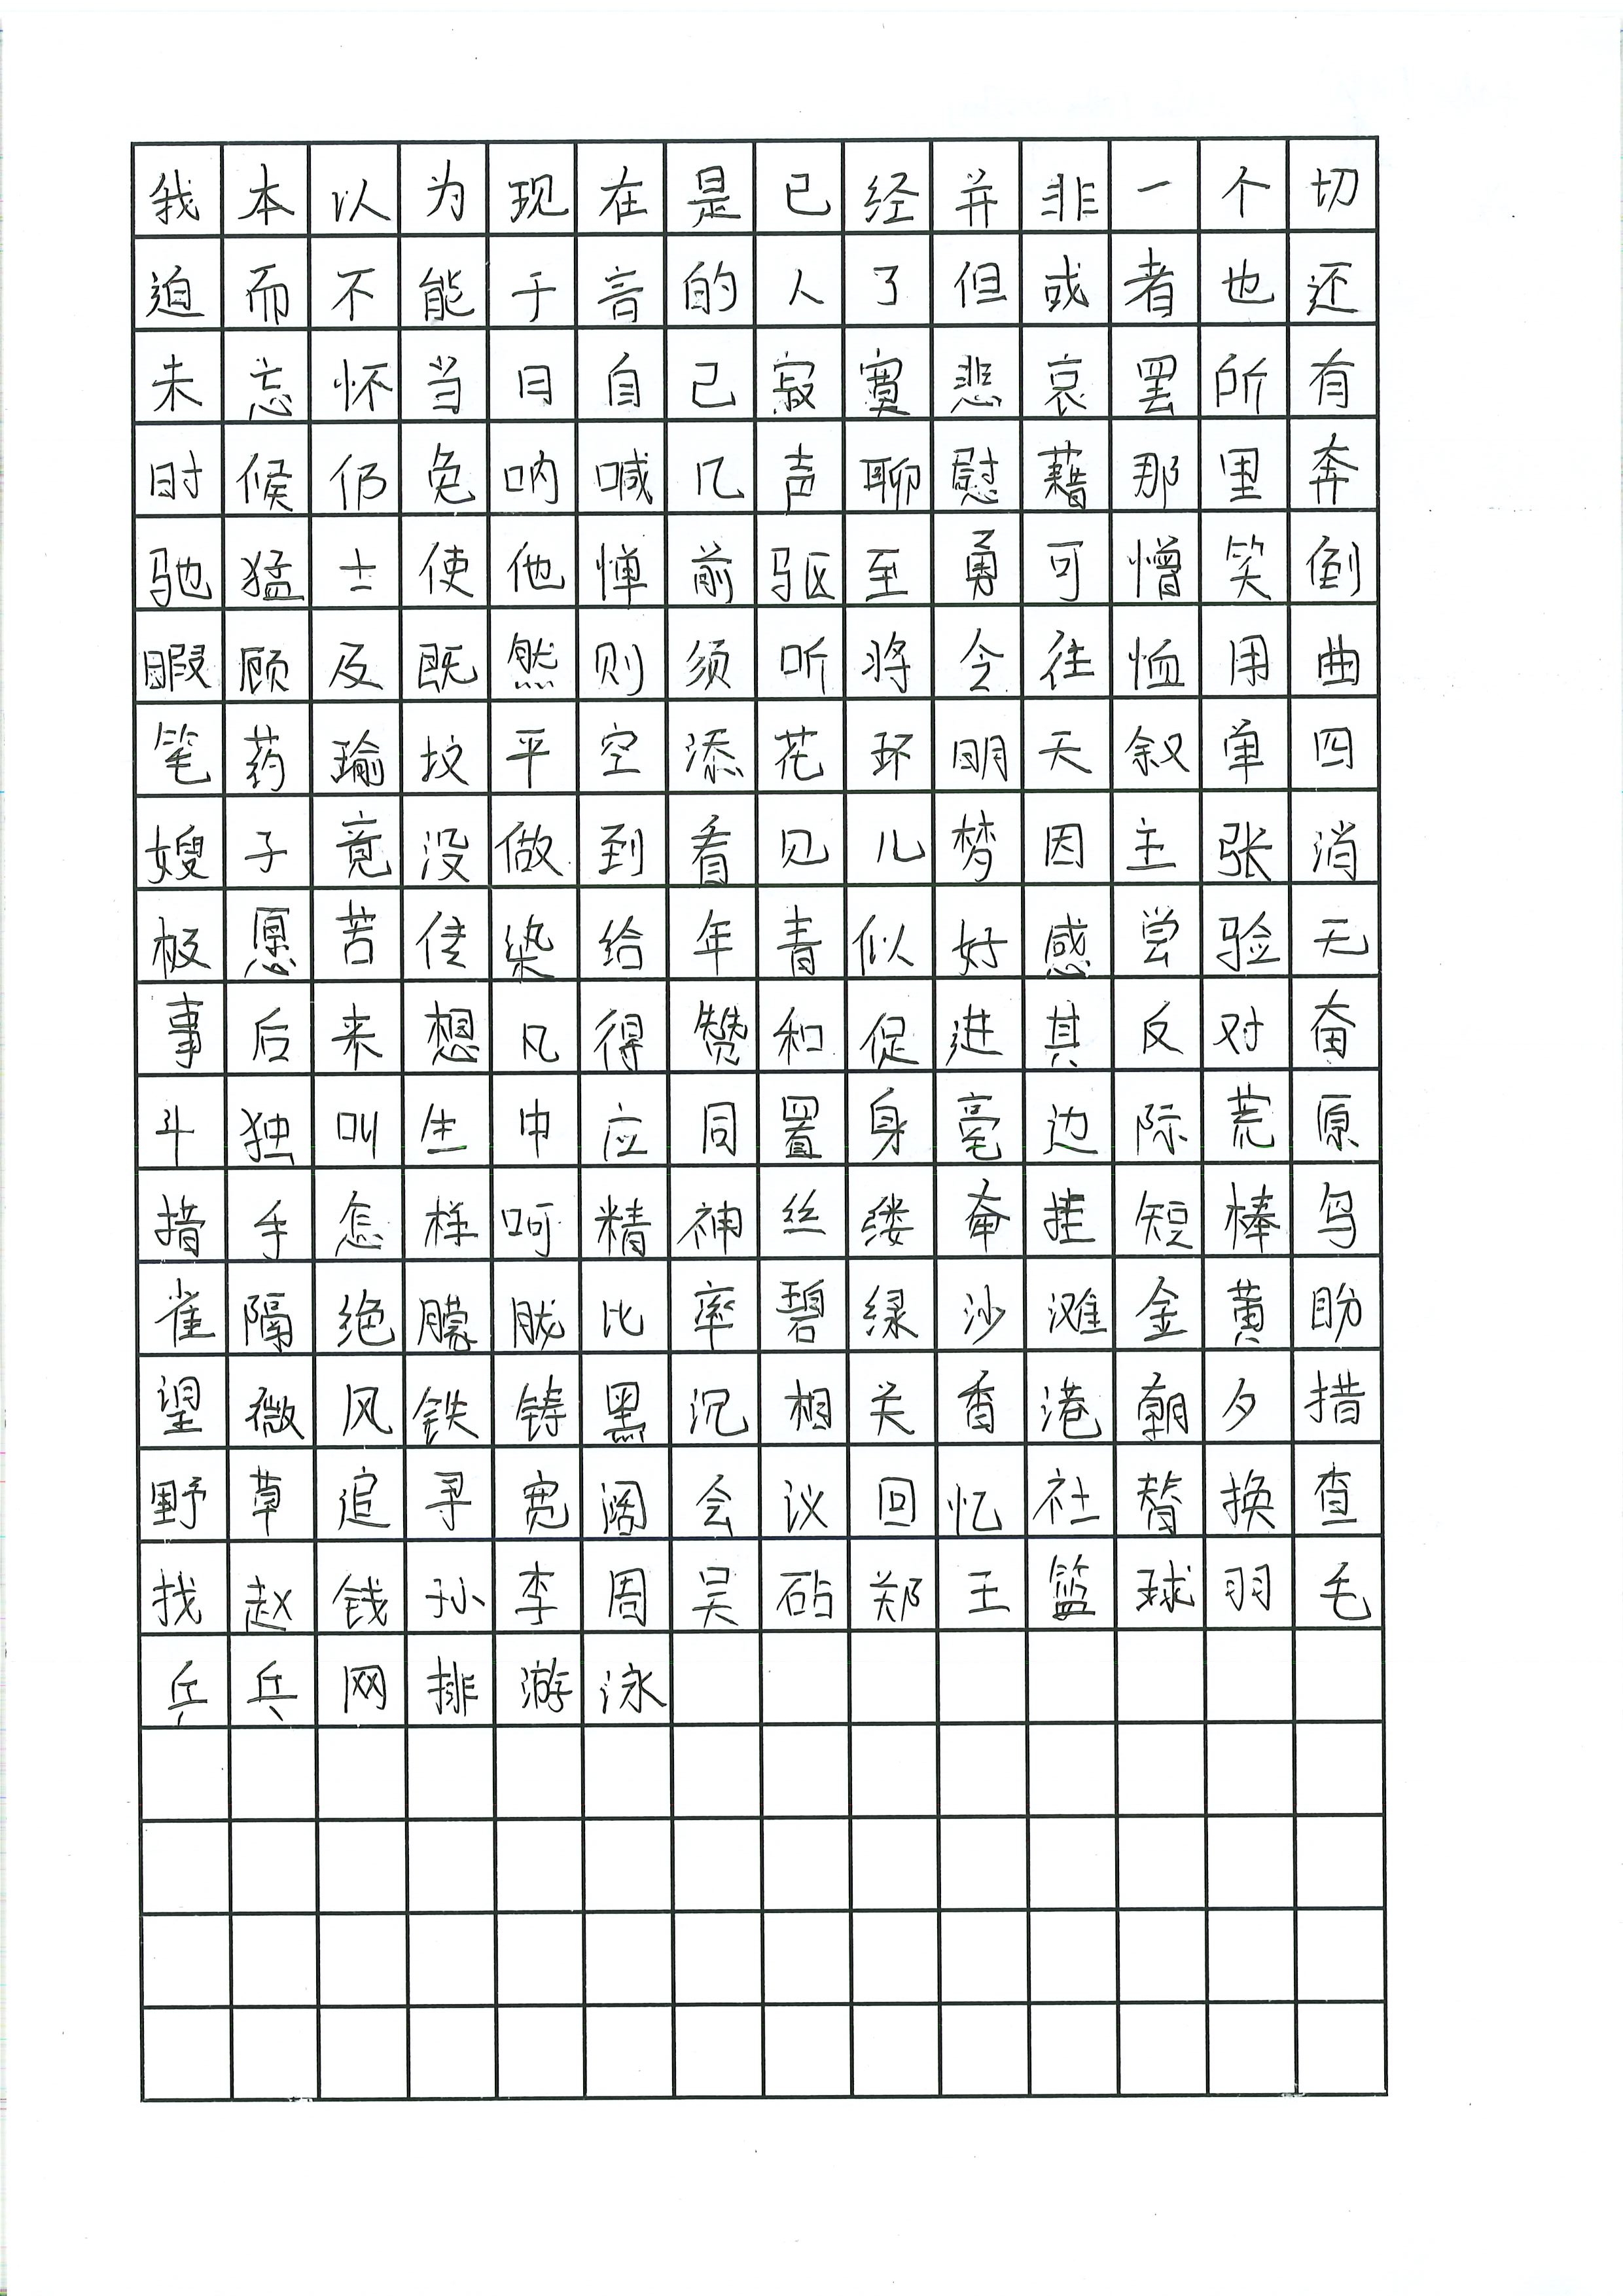 我本以为现在是已经并非一个切
迫而不能于音的人了但或者也还
未忘怀当日自己寂寞悲哀罢所有
时候仍免呐喊几声聊慰藉那里奔
驰猛士使他惮前驱至勇可憎笑倒
暇顾及既然则须听将令往恤用曲
笔药瑜坟平空添花环明天叙单四
嫂子竟没做到看见儿梦因主张消
极愿苦传染给年青似好感尝验无
事后来想凡得赞和促进其反对奋
斗独叫生中应同置身毫边际荒原
措手怎样呵精神丝缕奋挂短棒鸟
雀隔绝朦胧比率碧绿沙滩金黄盼
望微风铁铸黑沉相关香港朝夕措
野草追寻宽阔会议回忆社替换查
找赵钱孙李周吴砧郑王篮球羽毛
乒乓网排游泳